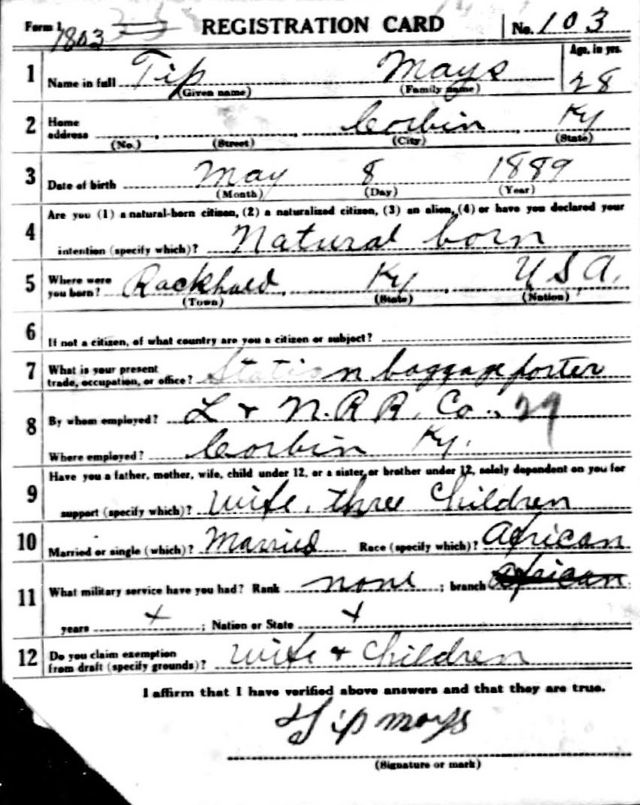 Form 1 REGISTRATION CARD No. 103
1803
Age, in yrs.
1 Name in full Tip Mays 28
(Given name) (Family name)
2 Home address Corbin Ky
(No.) (Street) (City) (State)
3 Date of birth May 8 1889
(Month) (Day) (Year)
4 Are you (1) a natural-born citizen, (2) a naturalized citizen, (3) an alien, (4) or have you declared your
intention (specify which)? Natural born
5 Where were you born? Rackhold Ky U.S.A.
(Town) (State) (Nation)
6 If not a citizen, of what country are you a citizen or subject?
7 What is your present trade, occupation, or office? Station baggage porter
8 By whom employed? L + N. R R. Co. 29
Where employed? Corbin Ky.
9 Have you a father, mother, wife, child under 12, or a sister or brother under 12, solely dependent on you for
support (specify which)? Wife, three Children
10 Married or single (which)? Married Race (specify which)? African
11 What military service have you had? Rank none ; branch African
years + ; Nation or State +
12 Do you claim exemption from draft (specify grounds)? Wife + Children
I affirm that I have verified above answers and that they are true.
Tip mays
(Signature or mark)